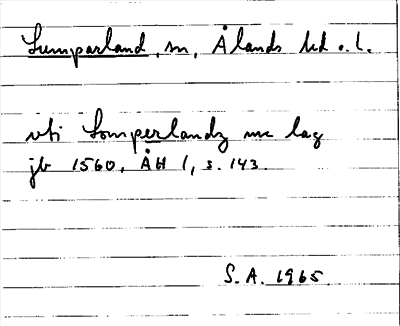 Lumparland, sn, Ålands hd o. l.
vti Lomperlandz mc lag
jb 1560, ÅH 1, s. 143.
S.A. 1965